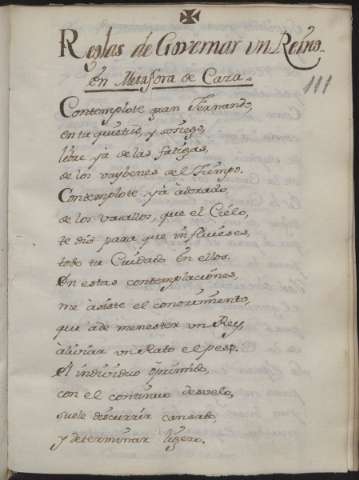 Reglas de Governar un Reino.
En Metafora de Caza.
111
Contemplote gran Fernando,
en tu quietud, y sosiego,
libre ya de las fatigas,
de los vaybenes del Tiempo.
Contemplote ya adorado,
de los vasallos, que el Cielo,
te dio para que influieses,
todo tu Cuidado en ellos.
En estas contemplaciones,
me asiste el conocimiento,
que a de menester un Rey,
aliviar un rato el peso.
Al individuo oprimido,
con el continuo desvelo,
suele descurrir cansado,
y determinar ligero.